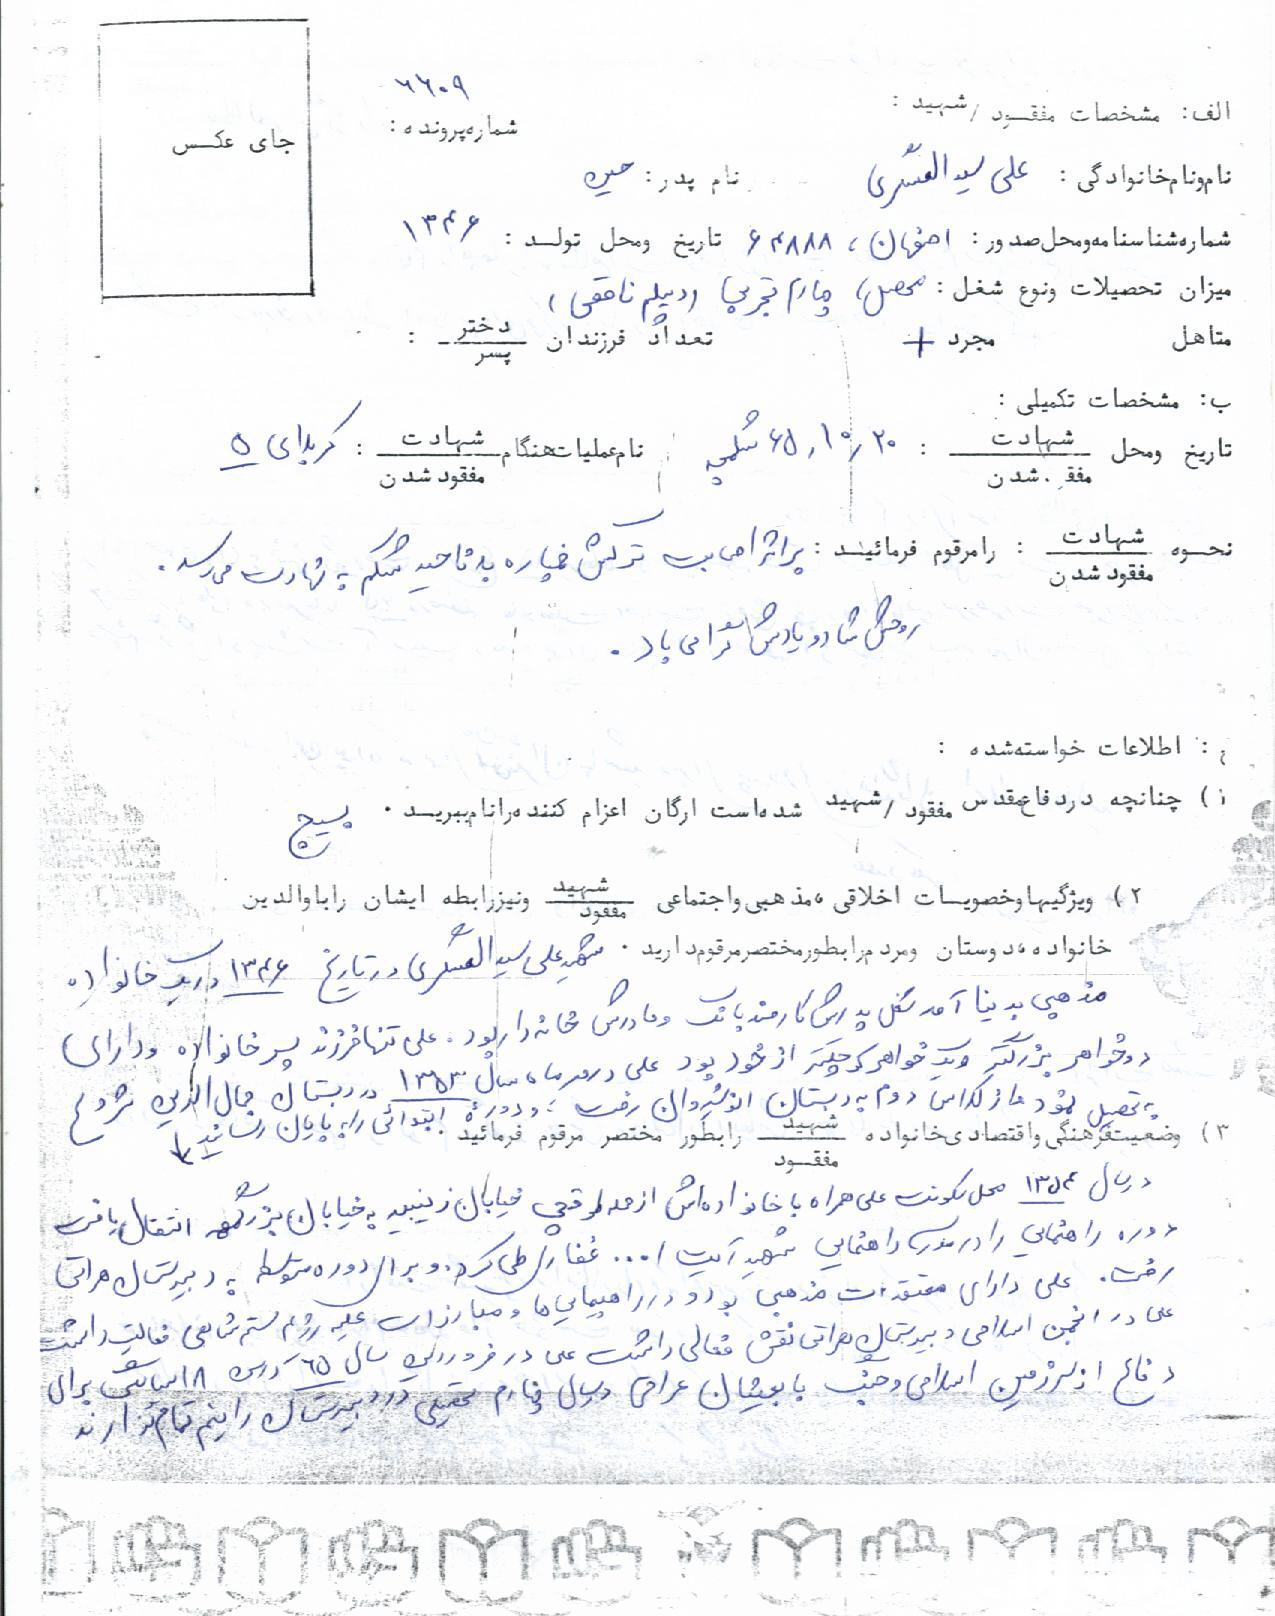 جای عکس
۶۶۰۹
الف: مشخصات مفقود/شهید :
شماره پرونده :
نام و نام خانوادگی : علی سید العسگری نام پدر : حسین
شماره شناسنامه و محل صدور : اصفهان ، ۶۴۸۸۸ تاریخ و محل تولد : ۱۳۴۶
میزان تحصیلات و نوع شغل : محصل ، چهارم تجربی (دیپلم ناقص)
متاهل مجرد + تعداد فرزندان دختر پسر :
ب: مشخصات تکمیلی :
تاریخ و محل شهادت مفقود شدن : ۶۵٫۱۰٫۲۰ شلمچه نام عملیات هنگام شهادت مفقود شدن : کربلای ۵
نحوه شهادت مفقود شدن : را مرقوم فرمائید : بر اثر اصابت ترکش خمپاره به ناحیه شکم به شهادت می رسد .
روحش شاد و یادش گرامی باد .
: اطلاعات خواسته شده :
۱) چنانچه در دفاع مقدس مفقود/شهید شده است ارگان اعزام کننده را نام ببرید . بسیج
۲) ویژگیها و خصویسات اخلاقی ، مذهبی و اجتماعی شهید مفقود و نیز رابطه ایشان را با والدین
خانواده ، دوستان و مردم را بطور مختصر مرقوم دارید . شهید علی سید العسگری در تاریخ ۱۳۴۶ در یک خانواده
مذهبی بدنیا آمد شغل پدرش کارمند بانک و مادرش خانه دار بود . علی تنها فرزند پسر خانواده و دارای
دو خواهر بزرگتر و یک خواهر کوچکتر از خود بود علی در مهر ماه سال ۱۳۵۳ در دبستان جمال الدین شروع
به تحصیل نمود و از کلاس دوم به دبستان انوشیروان رفت و دوره ابتدائی را به پایان رساند
۳) وضعیت فرهنگی و اقتصادی خانواده شهید مفقود را بطور مختصر مرقوم فرمائید .
در سال ۱۳۵۴ محل سکونت علی همراه با خانواده اش از محله خیابان زینبیه به خیابان بزرگمهر انتقال یافت
دوره راهنمایی را در مدرسه راهنمایی شهید آیت ا... غفاری طی کرد . و برای دوره متوسطه به دبیرستان هراتی
رفت . علی دارای معتقدات مذهبی بود و در راهپیمایی ها و مبارزات علیه رژیم ستم شاهی فعالیت داشت
علی در انجمن اسلامی دبیرستان هراتی نقش فعالی داشت علی در فروردین سال ۶۵ درس برای
دفاع از سرزمین اسلامی و جنگ با بعثیان عراقی در سال چهارم تحصیلی در دبیرستان را نیمه تمام گذارند